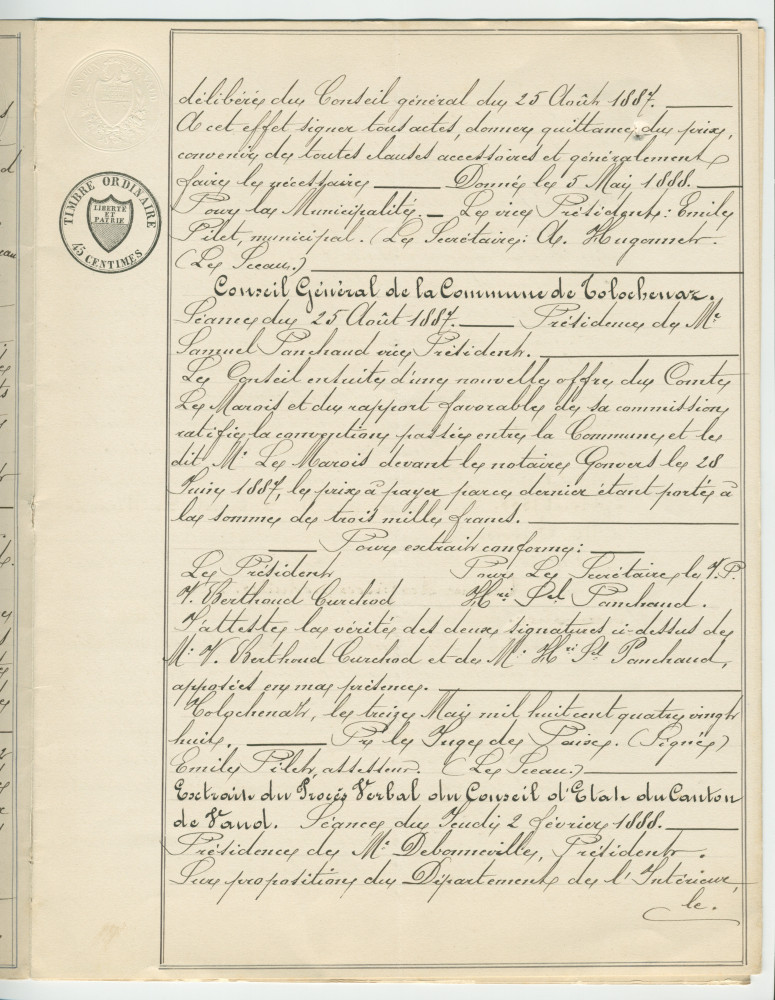 TIMBRE ORDINAIRE
LIBERTÉ
ET
PATRIE
45 CENTIMES
délibérée du Conseil général du 25 Août 1887.
A cet effet signer tous actes, donner quittance du prix,
convenir de toutes clauses accessoires et généralement
faire le nécessaire Donné le 5 Mai 1888.
Pour la Municipalité. Le vice Président: Emile
Pilet, municipal. (Le Secrétaire: A. Hugonnet.
(Le Sceau.)
Conseil Général de la Commune de Tolochenaz.
Séance du 25 Août 1887. Présidence de Mr
Samuel Panchaud vice Président.
Le Conseil ensuite d'une nouvelle offre du Comte
Le Marois et du rapport favorable de sa commission
ratifie la convention passée entre la Commune et le
dit Mr Le Marois devant le notaire Gonvers le 28
Juin 1887, le prix à payer par ce dernier étant porté à
la somme de trois mille francs.
Pour extrait conforme:
Le Président Pour Le Secrétaire le V. P.
V. Berthoud Curchod Hri Sl Panchaud.
J'atteste la vérité des deux signatures ci-dessus de
Mr V. Berthoud Curchod et de Mr Hri Sl Panchaud,
apposées en ma présence.
Tolochenaz, le treize Mai mil huit cent quatre vingt
huit, Pr le Juge de Paix. (Signé)
Emile Pilet, assesseur. (Le Sceau.)
Extrait du Procès Verbal du Conseil d'Etat du Canton
de Vaud. Séance du Jeudi 2 février 1888.
Présidence de Mr Debonneville, Président.
Sur proposition du Département de l'Intérieur,
le.